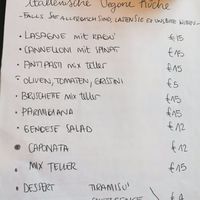 Italienische Vegane Küche
- FALLS SIE ALLERGISCH SIND, LASSEN SIE ES UNS BITTE WISSEN -
• LASAGNE mit RAGÙ €15
• CANNELLONI mit SPINAT €15
• ANTIPASTI mix teller €15
• OLIVEN, TOMATEN, GRISSINI €5
• BRUSCHETTE mix teller €15
• PARMIGIANA €15
• GENOESE SALAD €12
• CAPONATA €12
• MIX TELLER €15
• DESSERT TIRAMISU'